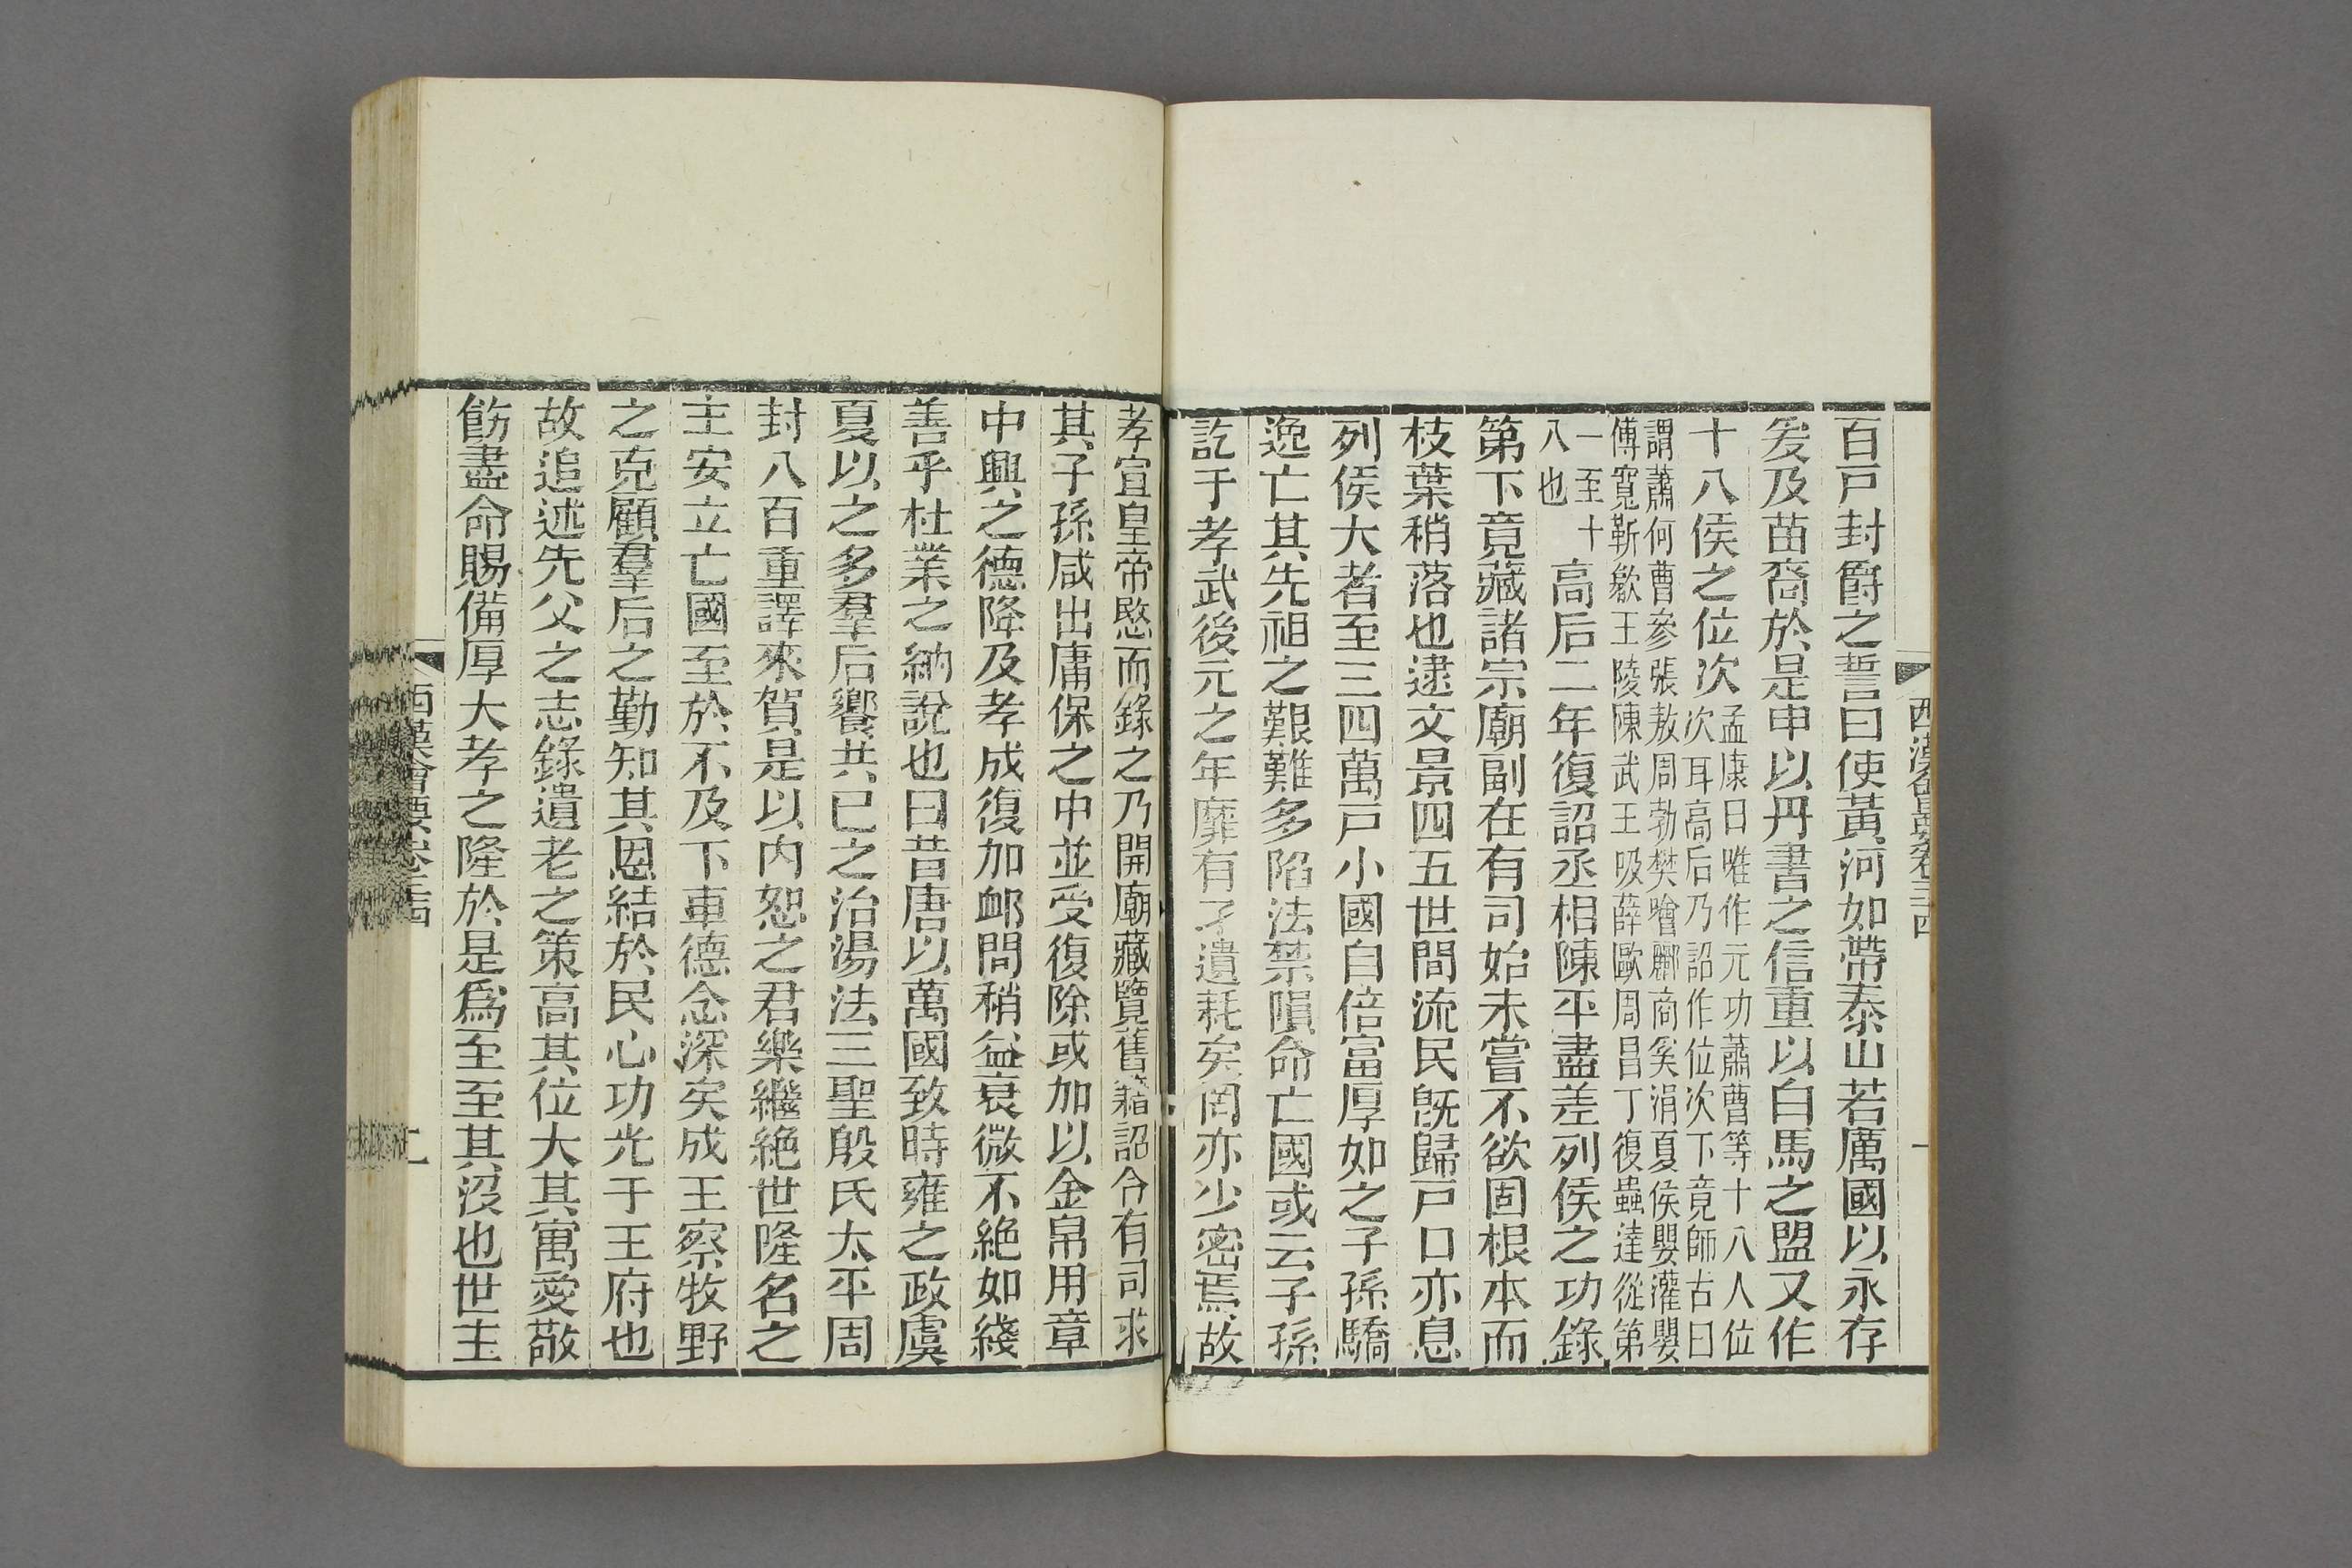 百戸封爵之誓曰使黃河如帶泰山若厲國以永存
爰及苗裔於是申以丹書之信重以白馬之盟又作
十八侯之位次孟康曰唯作元功蕭曹等十八人位
次耳高后乃詔作位次下竟師古曰
謂蕭何曹參張敖周勃樊噲酈商奚涓夏侯嬰灌嬰
傅寬靳歙王陵陳武王吸薛歐周昌丁復蟲達從第
一至十
八也
高后二年復詔丞相陳平盡差列侯之功錄
第下竟藏諸宗廟副在有司始未嘗不欲固根本而
枝葉稍落也逮文景四五世間流民旣歸戸口亦息
列侯大者至三四萬戸小國自倍富厚如之子孫驕
逸亡其先祖之艱難多陷法禁隕命亡國或云子孫
訖于孝武後元之年靡有孑遺耗矣罔亦少密焉故
西漢會要卷三十四
孝宣皇帝愍而錄之乃開廟藏覽舊籍詔令有司求
其子孫咸出庸保之中並受復除或加以金帛用章
中興之德降及孝成復加卹問稍益衰微不絶如綫
善乎杜業之納說也曰昔唐以萬國致時雍之政虞
夏以之多羣后饗共已之治湯法三聖殷氏太平周
封八百重譯來賀是以內恕之君樂繼絶世隆名之
主安立亡國至於不及下車德念深矣成王察牧野
之克顧羣后之勤知其恩結於民心功光于王府也
故追述先父之志錄遺老之策高其位大其寓愛敬
飭盡命賜備厚大孝之隆於是爲至至其沒也世主
西漢會要卷三十四